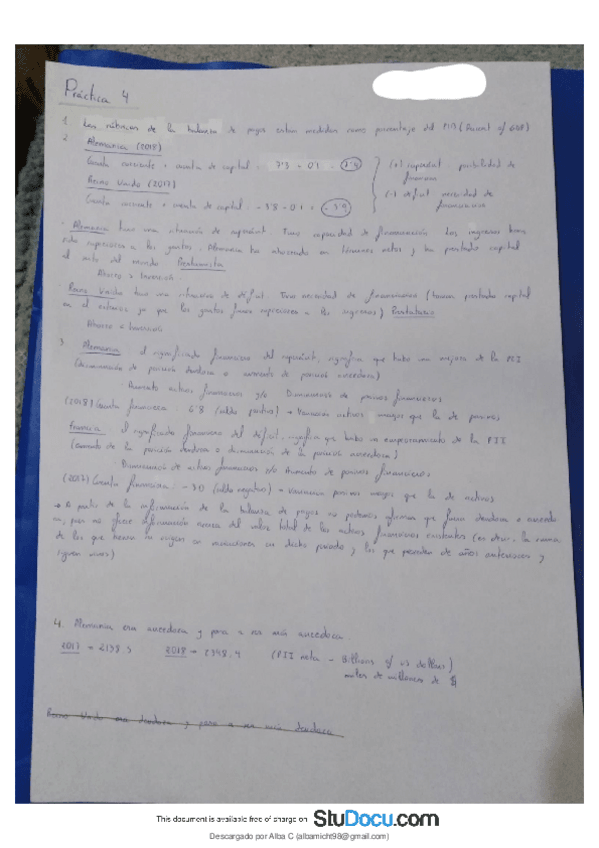 Práctica 4
1. Las rúbricas de la balanza de pagos están medidas como porcentaje del PIB (Percent of GDP)
2. Alemania (2018)
Cuenta corriente + cuenta de capital = 7'3 - 0'1 =
(+) superávit posibilidad de
Reino Unido (2017)
Cuenta corriente + cuenta de capital = -3'8 - 0'1 = -3'9
(-) déficit necesidad de
financiación
· Alemania tiene una situación de superávit. Tiene capacidad de financiación. Los ingresos han
sido superiores a los gastos. Alemania ha ahorrado en términos netos y ha prestado capital
al resto del mundo. Prestamista
Ahorro > Inversión
· Reino Unido tiene una situación de déficit. Tiene necesidad de financiación (toma prestado capital
en el exterior ya que los gastos fueron superiores a los ingresos) Prestatario
Ahorro < Inversión
3. Alemania: el significado financiero del superávit, significa que hubo una mejora de la PII
(disminución de posición deudora o aumento de posición acreedora)
Aumento activos financieros y/o Disminución de pasivos financieros
(2018) Cuenta financiera: 6'8 (saldo positivo) → Variación activos mayor que la de pasivos
Francia: el significado financiero del déficit, significa que hubo un empeoramiento de la PII
(aumento de la posición deudora o disminución de la posición acreedora)
Disminución de activos financieros y/o Aumento de pasivos financieros
(2017) Cuenta financiera: (saldo negativo) → Variación pasivos mayor que la de activos
→ A partir de la información de la balanza de pagos no podemos afirmar que fuera deudora o acreedo
ra, pues no ofrece información acerca del valor total de los activos financieros existentes (es decir, la suma
de los que tienen su origen en variaciones en dicho periodo y los que proceden de años anteriores y
siguen vivos)
4. Alemania era acreedora y pasa a ser más acreedora.
2017 = 2198'3 2018 = 2348'4 (PII neta - Billions of US dollars)
miles de millones de $
Reino Unido era deudora y pasa a ser más deudora
This document is available free of charge on StuDocu.com
Descargado por Alba C (albamicht98@gmail.com)